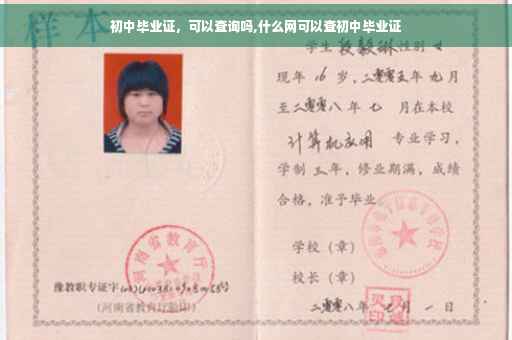 初中毕业证，可以查询吗,什么网可以查初中毕业证
样本
学生 性别 女
现年 16 岁，二零零五年 九 月
至二零零八年 七 月在本校
计算机应用 专业学习，
学制 三 年，修业期满，成绩
合格，准予毕业
学校（章）
校长（章）
二零零八年 月 一 日
河南省教育厅
豫教职专证字
（河南省教育厅验印）